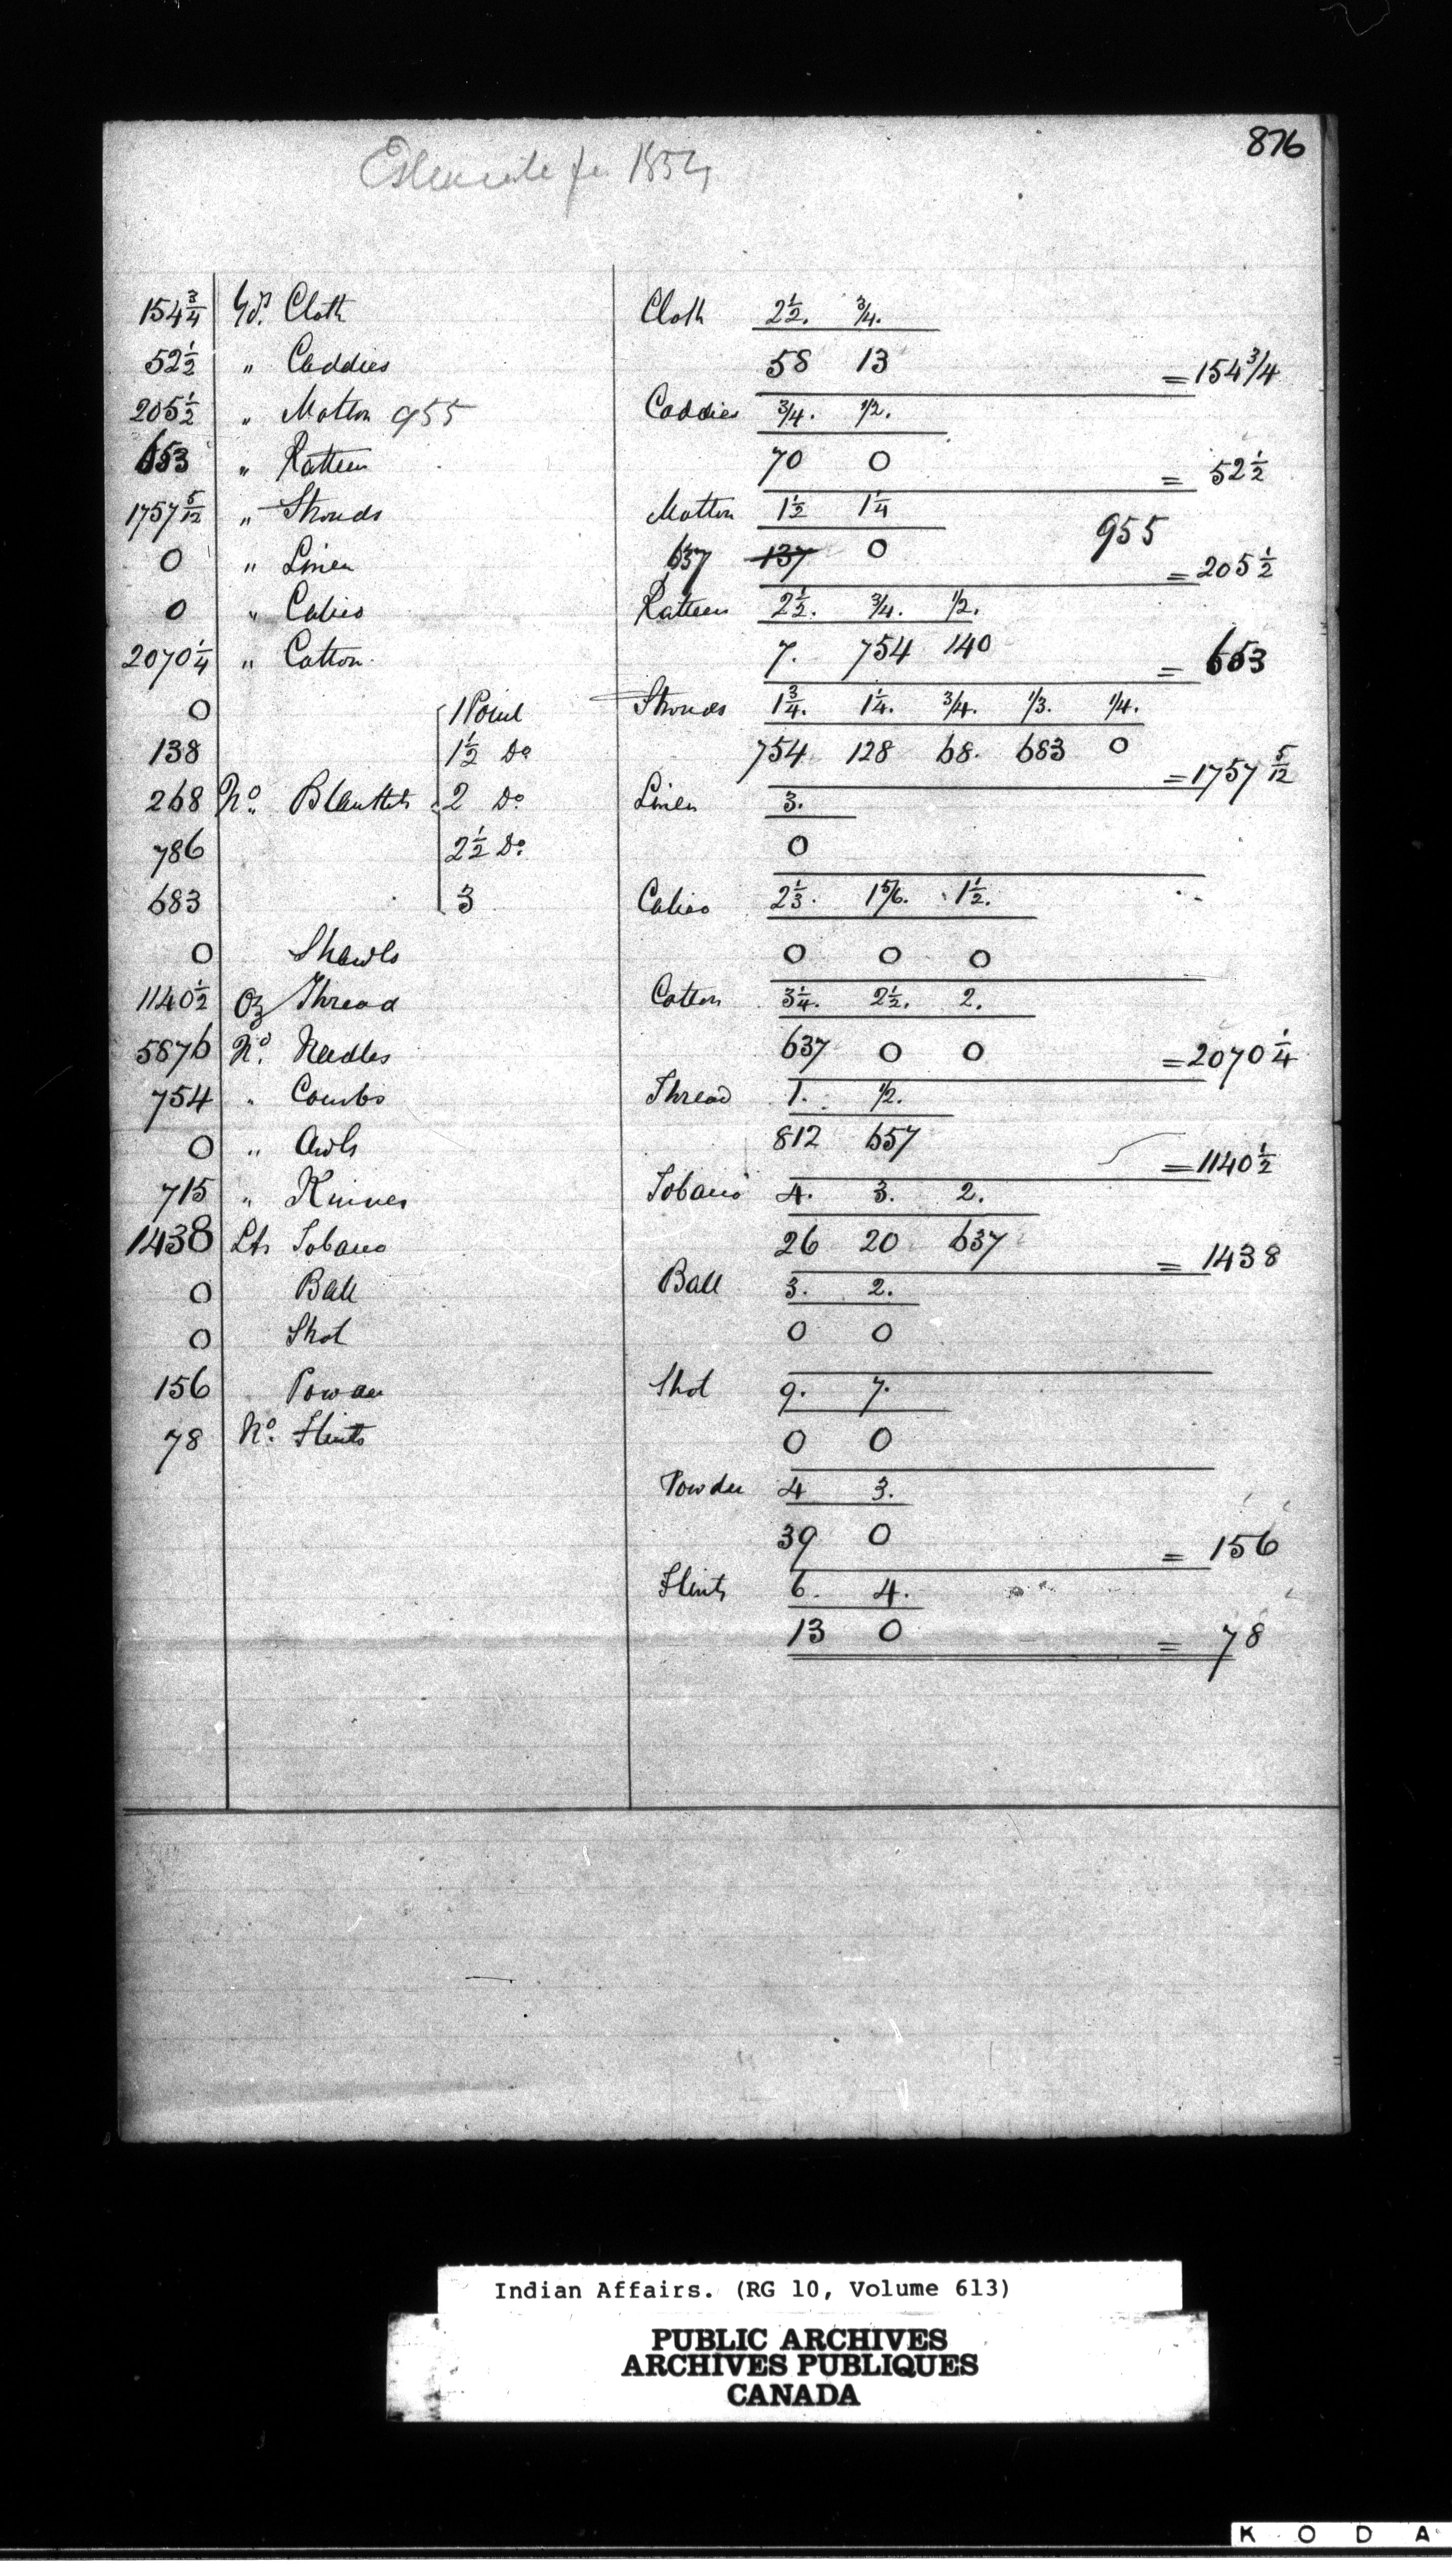 876
Estimate for 1854
154 3/4 Yds. Cloth
52 1/2 " Caddies
205 1/2 " Molton 955
653 " Ratteen
1757 5/12 " Strouds
0 " Linen
0 " Calico
2070 1/4 " Cotton
0 1 Point
138 1 1/2 Do
268 No. Blankets 2 Do.
786 2 1/2 Do.
683 3
0 Shawls
1140 1/2 Oz Thread
5876 No. Needles
754 " Combs
0 " Awls
715 " Knives
1438 Lbs Tobacco
0 Ball
0 Shot
156 Powder
78 No. Flints
Cloth 2 1/2. 3/4.
58 13 = 154 3/4
Caddies 3/4. 1/2.
70 0 = 52 1/2
Molton 1 1/2 1 1/4
637 137 0 955 = 205 1/2
Ratteen 2 1/2. 3/4. 1/2.
7. 754 140 = 653
Strouds 1 3/4. 1 1/4. 3/4. 1/3. 1/4.
754 128 68. 683 0 = 1757 5/12
Linen 3.
0
Calico 2 1/3. 1 5/6. 1 1/2.
0 0 0
Cotton 3 1/4. 2 1/2. 2.
637 0 0 = 2070 1/4
Thread 1. 1/2.
812 657 = 1140 1/2
Tobacco 4. 3. 2.
26 20 637 = 1438
Ball 3. 2.
0 0
Shot 9. 7.
0 0
Powder 4 3.
39 0 = 156
Flints 6. 4.
13 0 = 78
Indian Affairs. (RG 10, Volume 613)
PUBLIC ARCHIVES
ARCHIVES PUBLIQUES
CANADA
K O D A